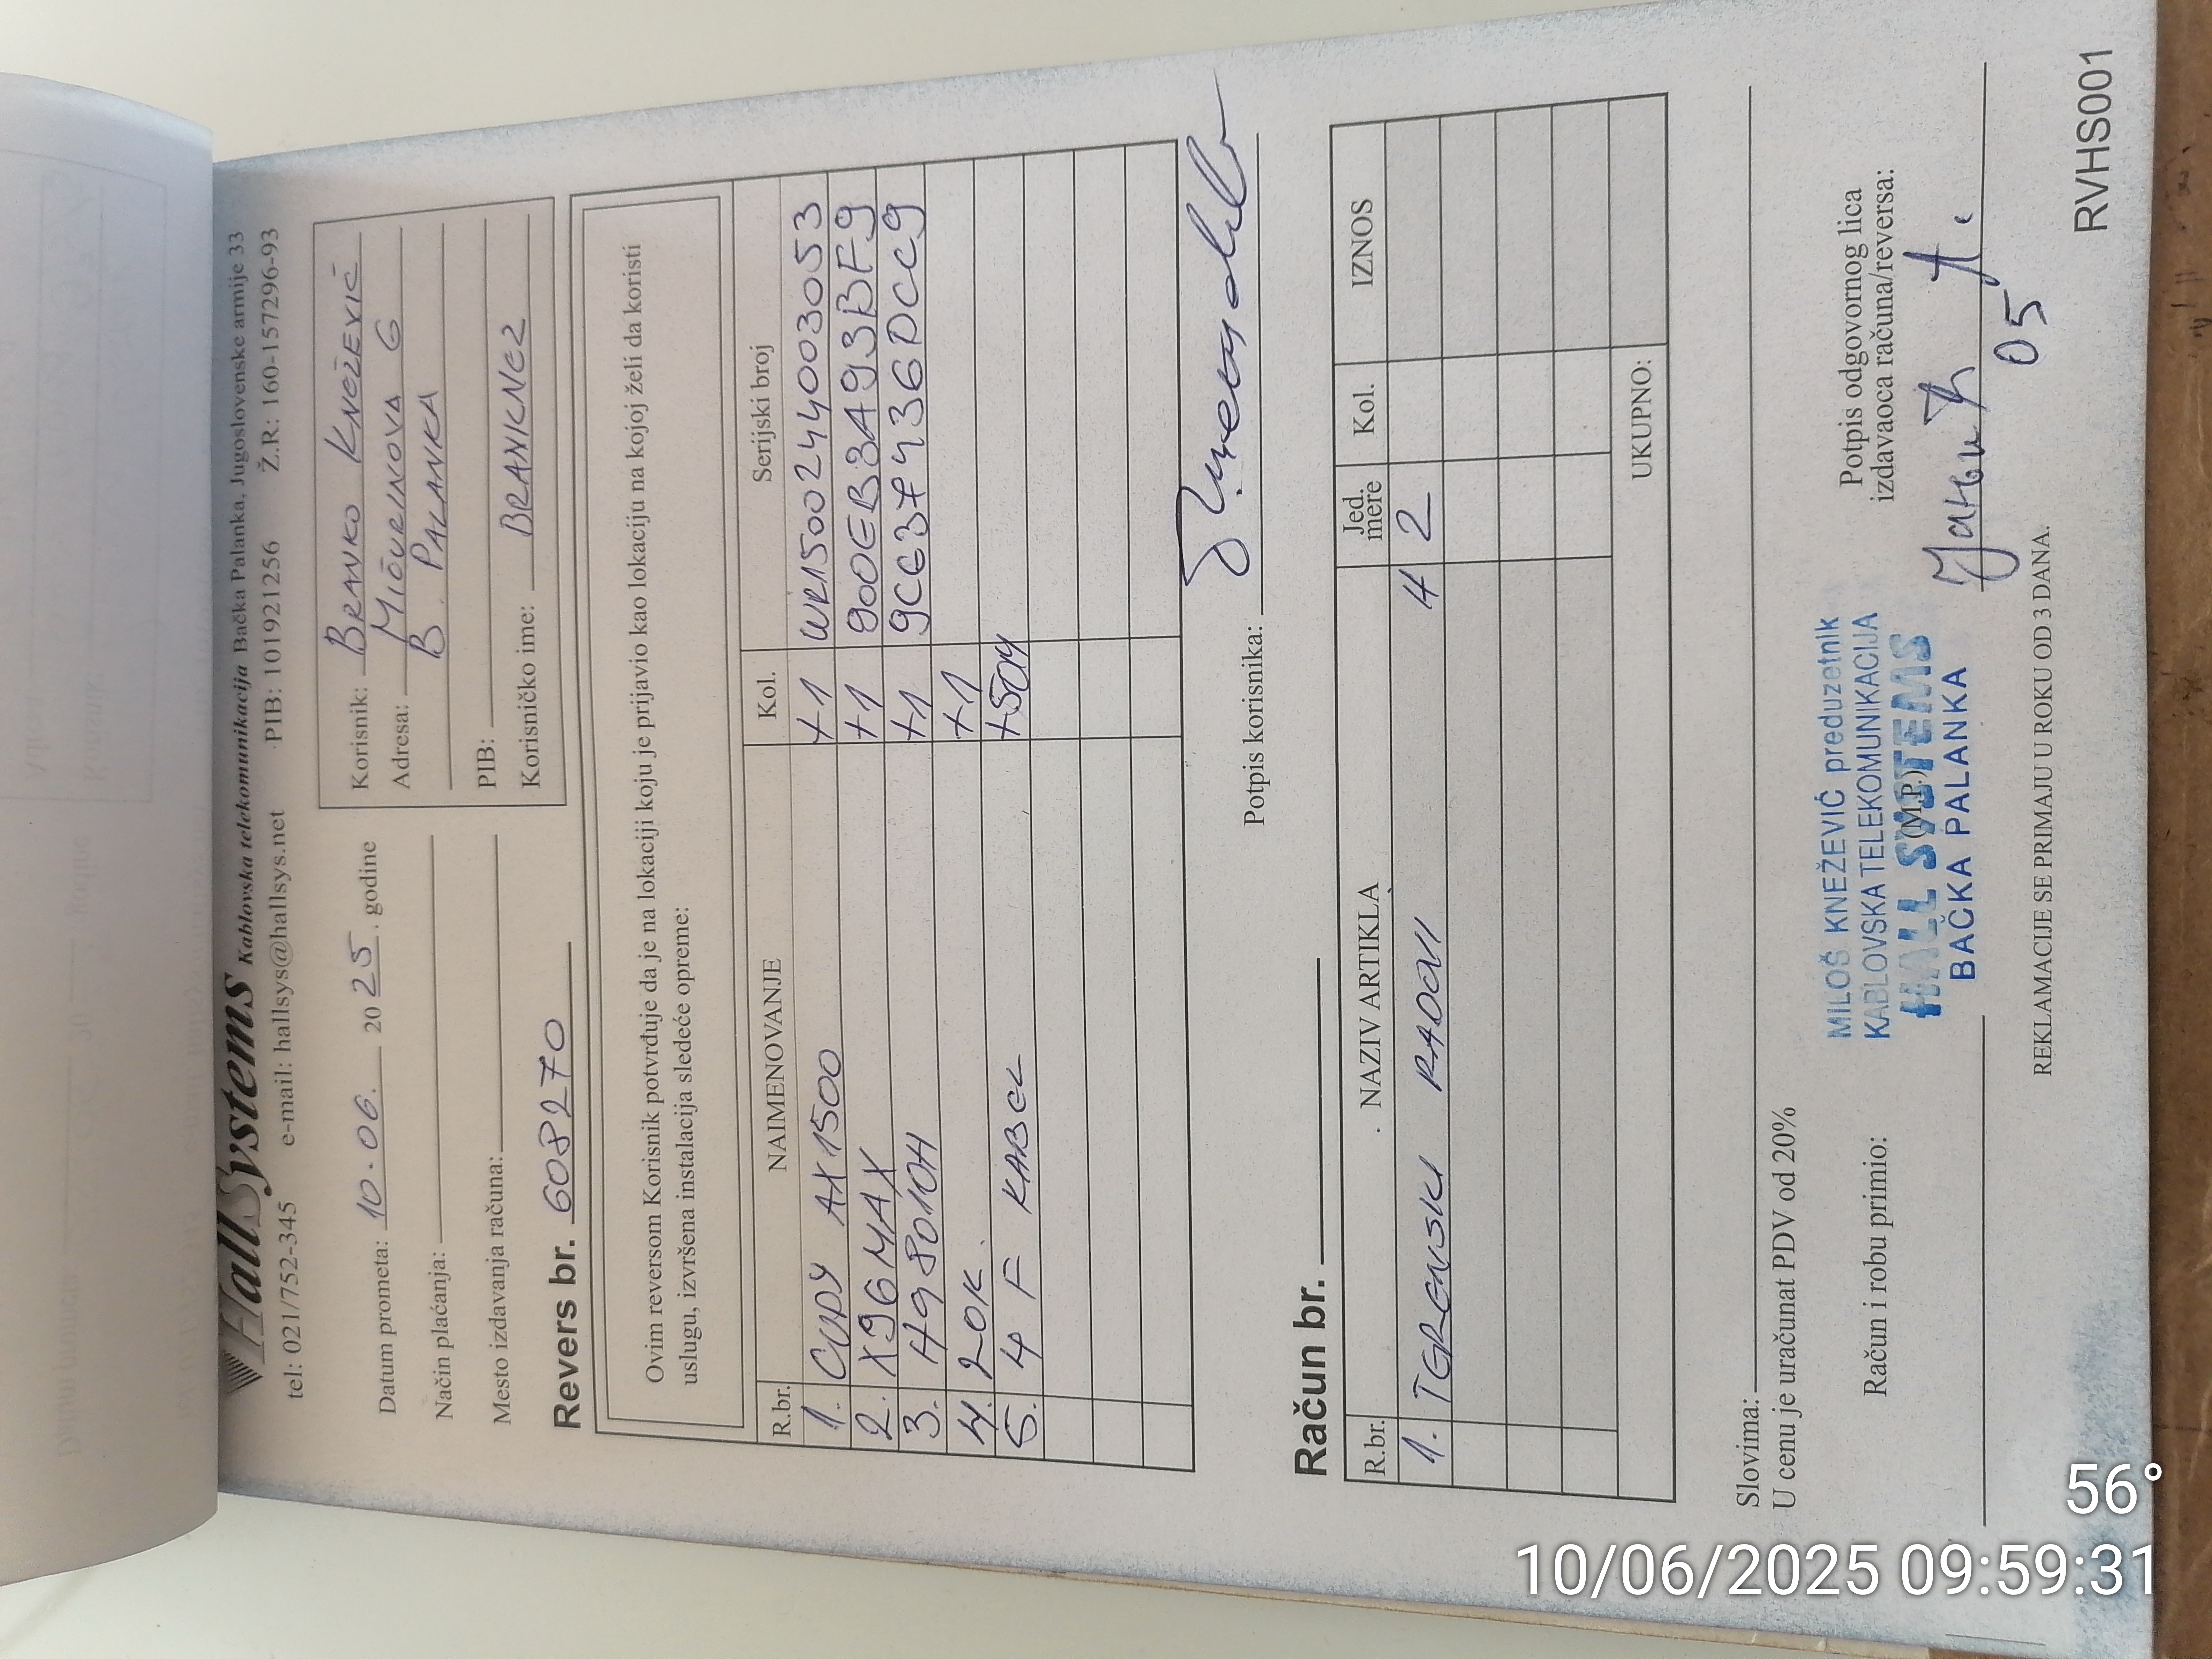 HallSystems Kablovska telekomunikacija Bačka Palanka, Jugoslovenske armije 33
tel: 021/752-345 e-mail: hallsys@hallsys.net PIB: 101921256 Ž.R: 160-157296-93
Datum prometa: 10.06. 2025. godine
Način plaćanja:
Mesto izdavanja računa:
Korisnik: BRANKO KNEŽEVIĆ
Adresa: MIČURINOVA 6
B. PALANKA
PIB:
Korisničko ime: BRANKNEZ
Revers br. 608270
Ovim reversom Korisnik potvrđuje da je na lokaciji koju je prijavio kao lokaciju na kojoj želi da koristi
uslugu, izvršena instalacija sledeće opreme:
R.br. NAIMENOVANJE Kol. Serijski broj
1. CUDY AX1500 +1 WR1500244003053
2. X96MAX +1 900EB3A93BF9
3. H98010H +1 9C637436DCC9
4. 20K. +1
5. 4 F KABEL +50M
Potpis korisnika:
Račun br.
R.br. NAZIV ARTIKLA Jed. mere Kol. IZNOS
1. TERENSKI RADOVI H 2
UKUPNO:
Slovima:
U cenu je uračunat PDV od 20%
Račun i robu primio:
MILOŠ KNEŽEVIĆ preduzetnik
KABLOVSKA TELEKOMUNIKACIJA
HALL SYSTEMS
(M.P.)
BAČKA PALANKA
Potpis odgovornog lica
izdavaoca računa/reversa:
05
REKLAMACIJE SE PRIMAJU U ROKU OD 3 DANA.
RVHS001
56°
10/06/2025 09:59:31